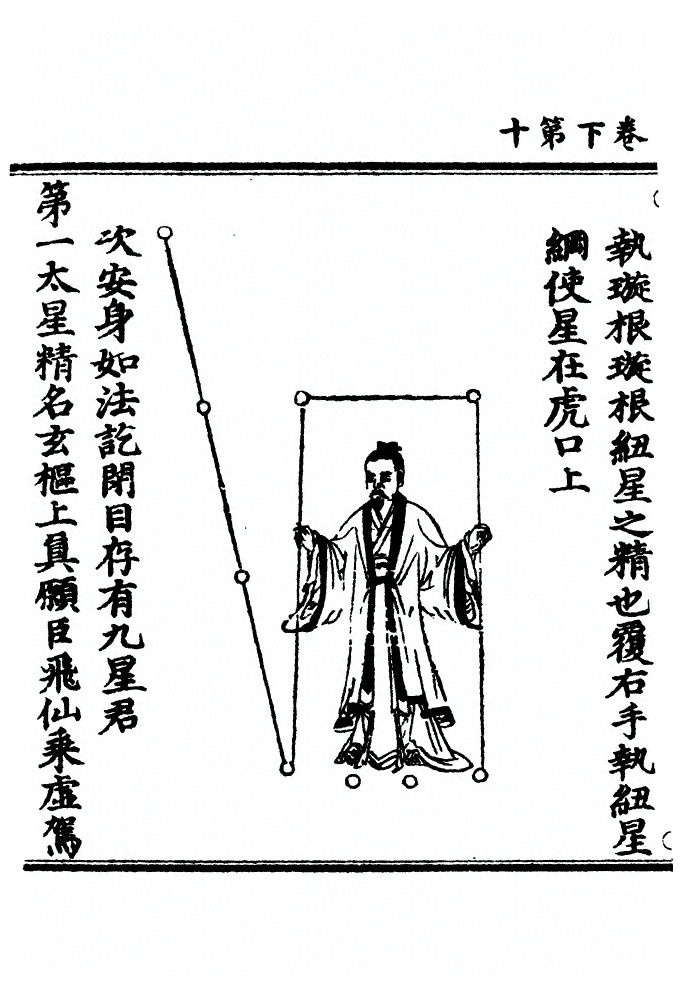 卷下第十
執璇根璇根紐星之精也覆右手執紐星
綱使星在虎口上
次安身如法訖閉目存有九星君
第一太星精名玄樞上真願臣飛仙乘虛駕